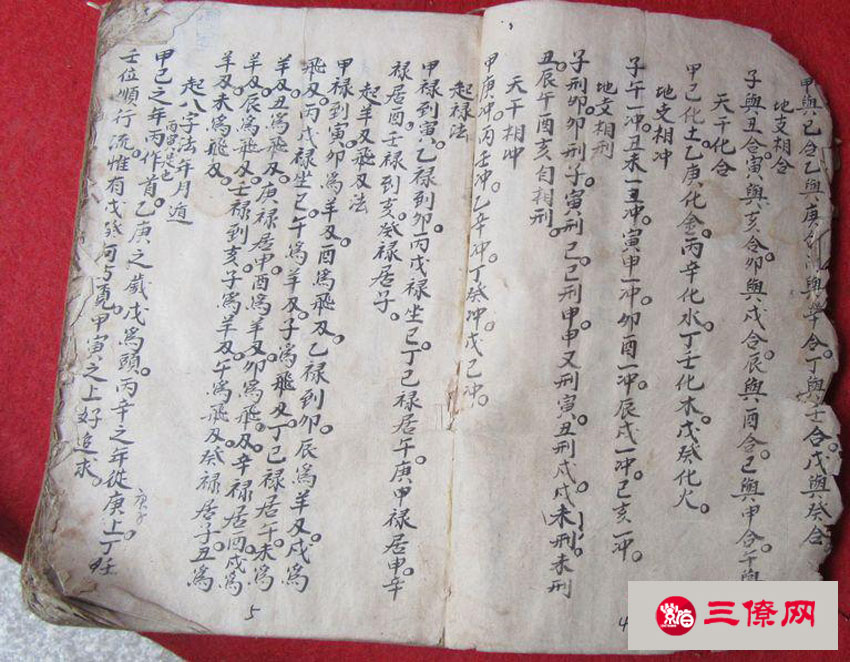 甲與己合乙與庚與辛合。丁與壬合。戊與癸合
地支相合
子與丑合。寅與亥合。卯與戌合辰與酉合。巳與申合午與
天干化合
甲己化土。乙庚化金。丙辛化水。丁壬化木。戊癸化火。
地支相冲
子午一冲。丑未一冲。寅申一冲。卯酉一冲。辰戌一冲。巳亥一冲。
地支相刑
子刑卯。卯刑子。寅刑巳。巳刑申。申又刑寅。丑刑戌。戌未刑未刑
丑。辰午酉亥自相刑。
天干相冲
甲庚冲。丙壬冲。乙辛冲。丁癸冲戊己冲。
4
起禄法
甲禄到寅。乙禄到卯。丙戊禄坐巳。丁己禄居午。庚甲禄居申辛
禄居酉。壬禄到亥。癸禄居子。
起羊刃飛刃法
甲禄到寅。卯為羊刃。酉為飛刃。乙禄到卯。辰為羊刃。戌為
飛刃。丙戊禄坐巳。午為羊刃。子為飛刃。丁己禄居午。未為
羊刃。丑為飛刃。庚禄居申。酉為羊刃。卯為飛刃。辛禄居酉。戌為
羊刃。辰為飛刃。壬禄到亥。子為羊刃。午為飛刃。癸禄居子。丑為
羊刃。未為飛刃。
起八字法年月遁
甲己之年丙作首。乙庚之歲戊為頭。丙辛之年從庚上。丁壬
壬位順行流。惟有戊癸何方覓。甲寅之上好追求。
庚子
5
三僚网